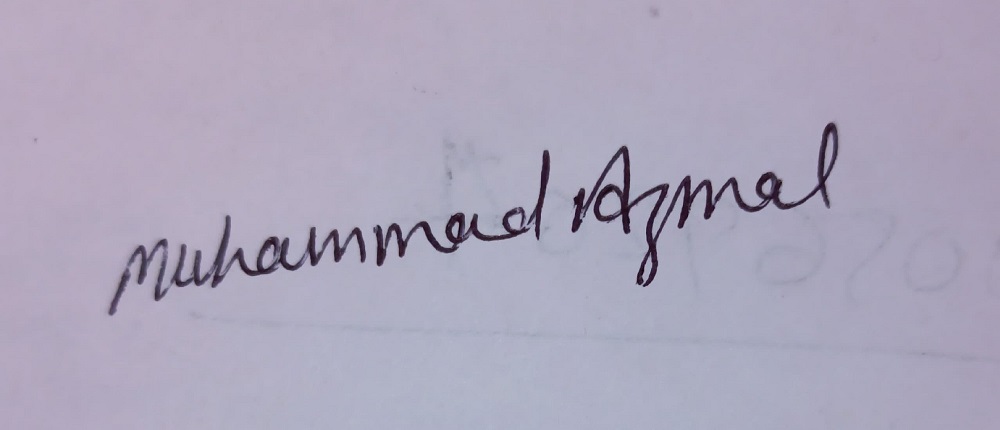 Muhammad Azmal